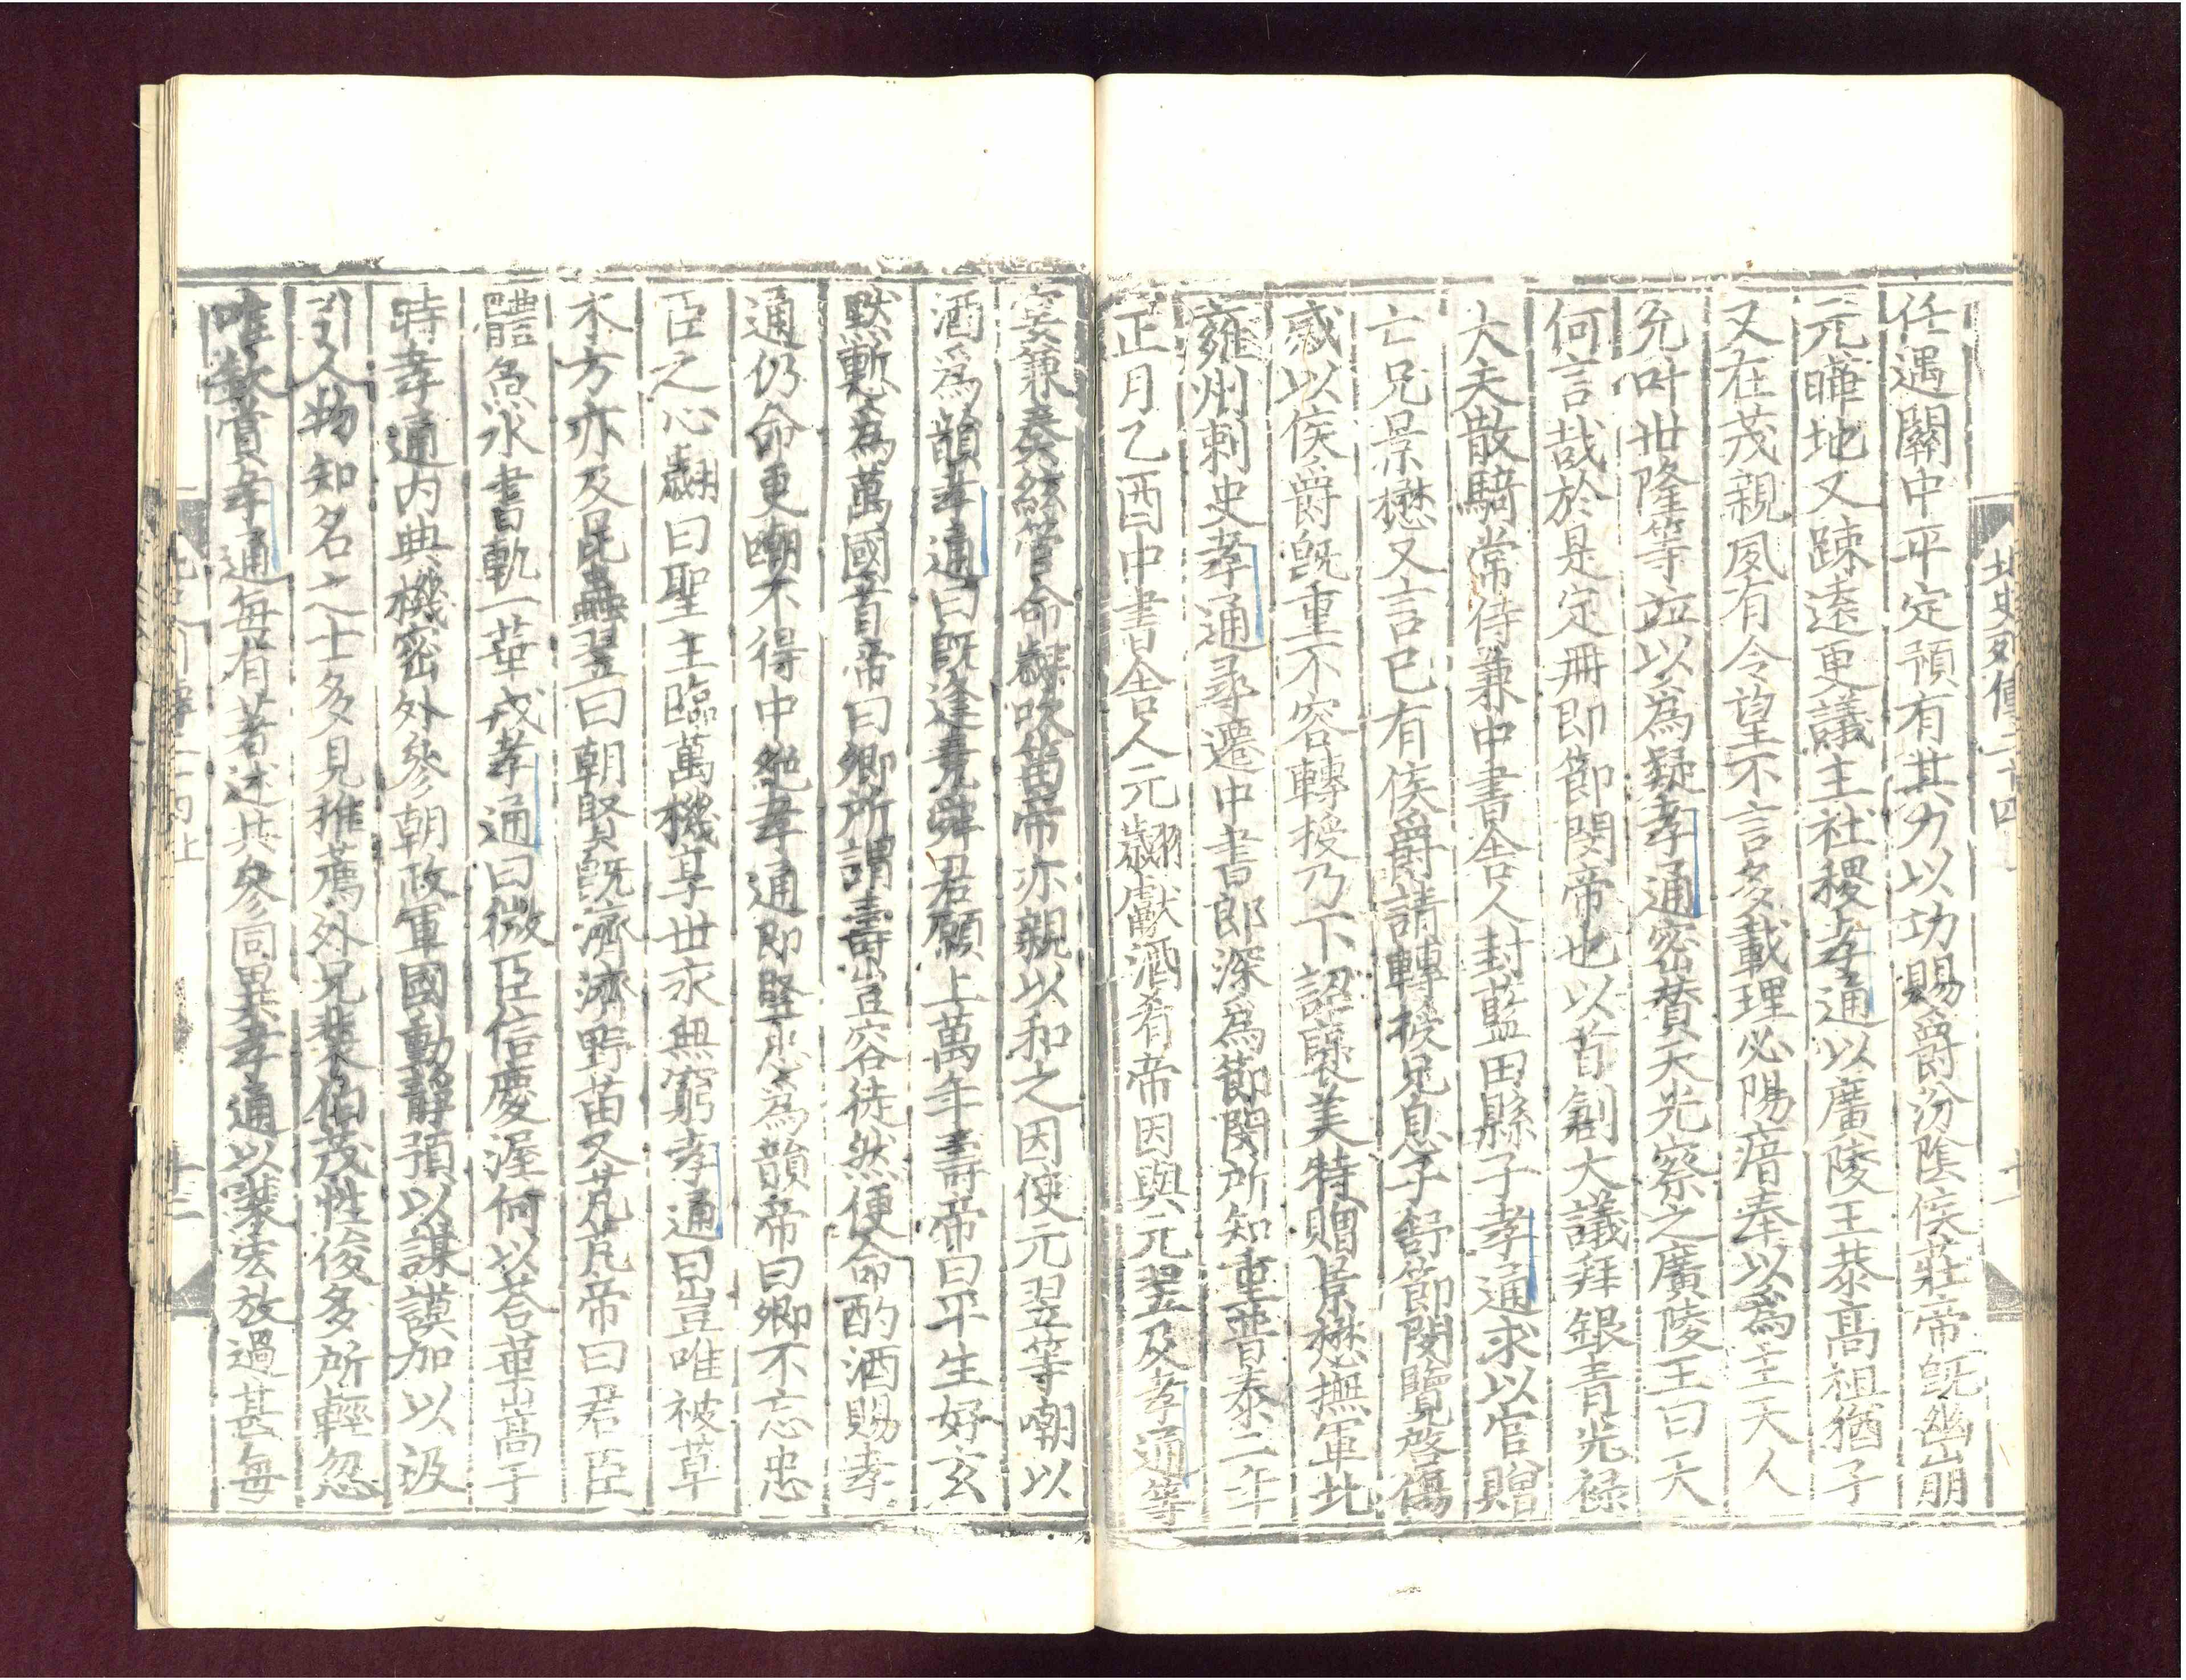 北史列傳二十四
任遇關中平定預有其力以功賜爵汾隂侯莊帝旣幽崩
元曄地又踈遠更議主社稷孝通以廣陵王恭髙祖猶子
又在茂親夙有令望不言多載理必陽瘖奉以為主天人
允叶世隆等竝以為疑孝通密賛天光察之廣陵王曰天
何言哉於是定冊即節閔帝也以首創大議拜銀青光禄
大夫散騎常侍兼中書舎人封藍田縣子孝通求以官贈
亡兄景懋又言已有侯爵請轉授兄息子舒節閔覽啓傷
感以侯爵旣重不容轉授乃下詔褒美特贈景懋撫軍北
雍州刺史孝通尋遷中書郎深爲節閔所知重普泰二年
正月乙酉中書舎人元翽獻酒肴帝因與元翌及孝通等
宴兼奏絃管命翽吹笛帝亦親以和之因使元翌等嘲以
酒爲韻孝通曰旣逢堯舜君願上萬年壽帝曰平生好玄
黙慙為萬國首帝曰卿所謂壽豈容徒然便命酌酒賜孝
通仍命更嘲不得中絶孝通即竪忠為韻帝曰卿不忘忠
臣之心翽曰聖主臨萬機享世永無窮孝通曰豈唯被草
木方亦及昆蟲翌曰朝賢旣濟濟野苗又芃芃帝曰君臣
體魚水書軌一華戎孝通曰微臣信慶渥何以荅華嵩于
時孝通内典機密外參朝政軍國動靜預以謀謨加以汲
引人物知名之士多見推薦外兄裴伯茂性俊多所輕忽
唯欽賞孝通毎有著述共參同異孝通以裴宏放過甚毎